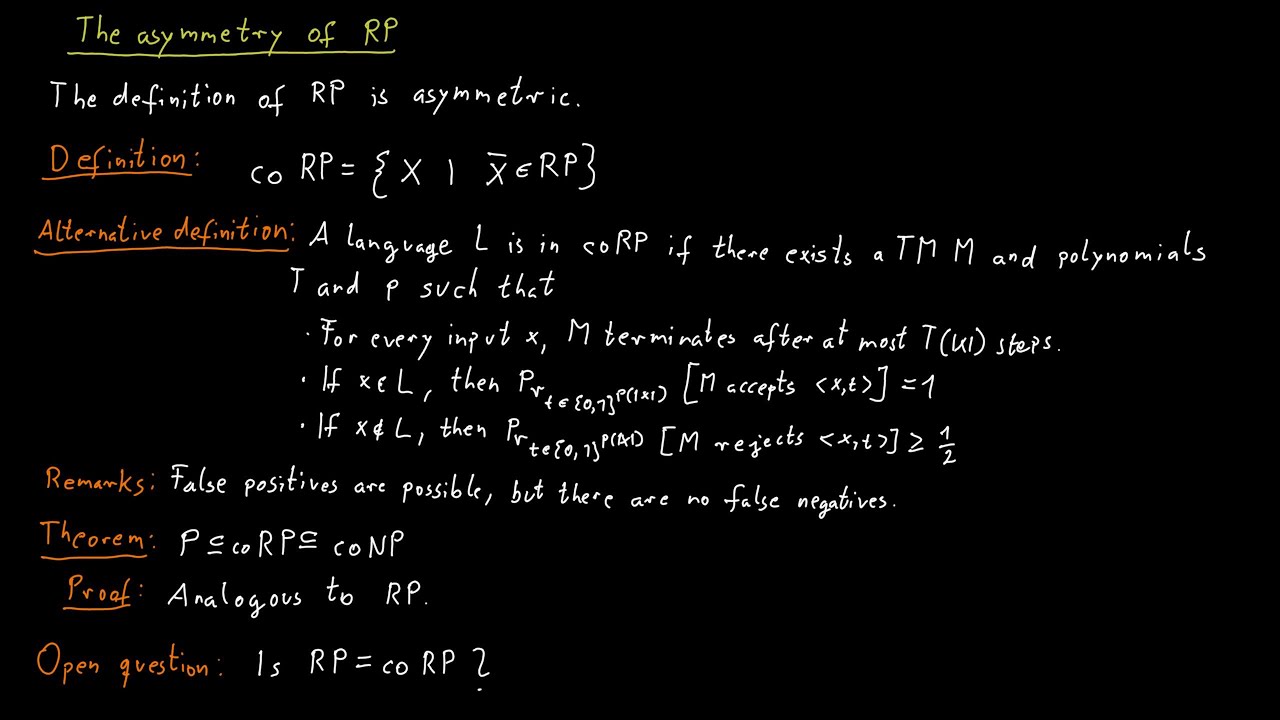 The asymmetry of RP
The definition of RP is asymmetric.
Definition: co RP = { X | X̄ ∈ RP }
Alternative definition: A language L is in coRP if there exists a TM M and polynomials
T and p such that
· For every input x, M terminates after at most T(|x|) steps.
· If x ∈ L, then Pr_{t ∈ {0,1}^{p(|x|)}} [M accepts <x,t>] = 1
· If x ∉ L, then Pr_{t ∈ {0,1}^{p(|x|)}} [M rejects <x,t>] ≥ 1/2
Remarks: False positives are possible, but there are no false negatives.
Theorem: P ⊆ coRP ⊆ coNP
Proof: Analogous to RP.
Open question: Is RP = co RP ?